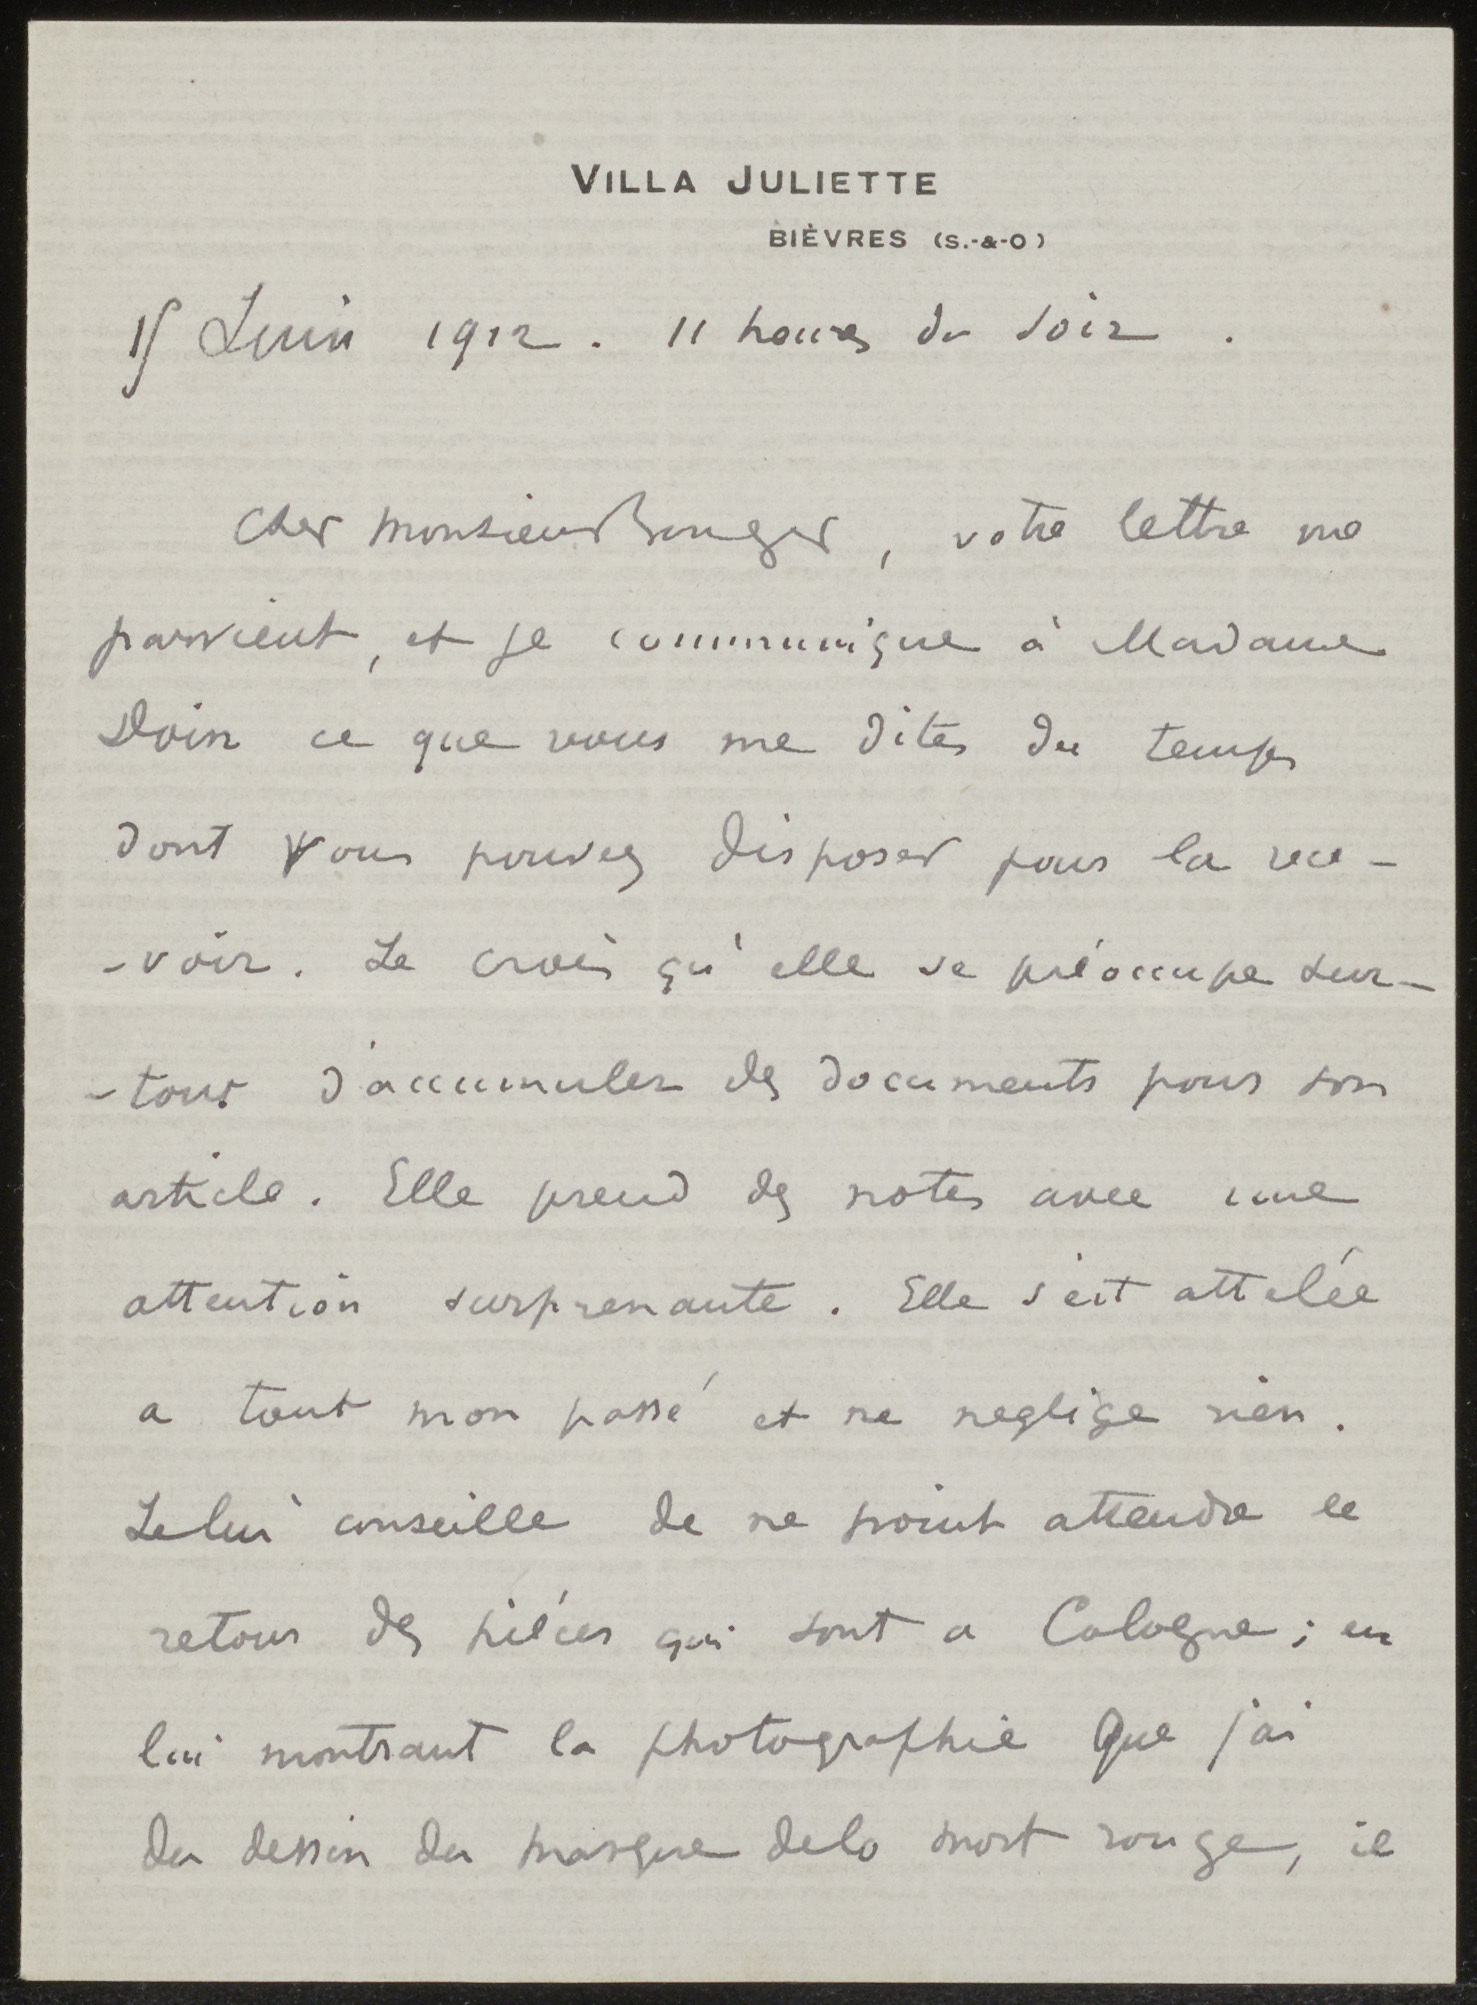 VILLA JULIETTE
BIÈVRES (S.-&-O)
15 Juin 1912. 11 heures du soir.
Cher Monsieur Bonger, votre lettre me
parvient, et je communique à Madame
Doin ce que vous me dites du temps
dont vous pouvez disposer pour la rece-
-voir. Je crois qu'elle se préoccupe sur-
-tout d'accumuler des documents pour son
article. Elle prend des notes avec une
attention surprenante. Elle s'est attelée
a tout mon passé et ne neglige rien.
Je lui conseille de ne point attendre le
retour des pièces qui sont a Cologne; en
lui montrant la photographie que j'ai
du dessin du masque de la mort rouge, il